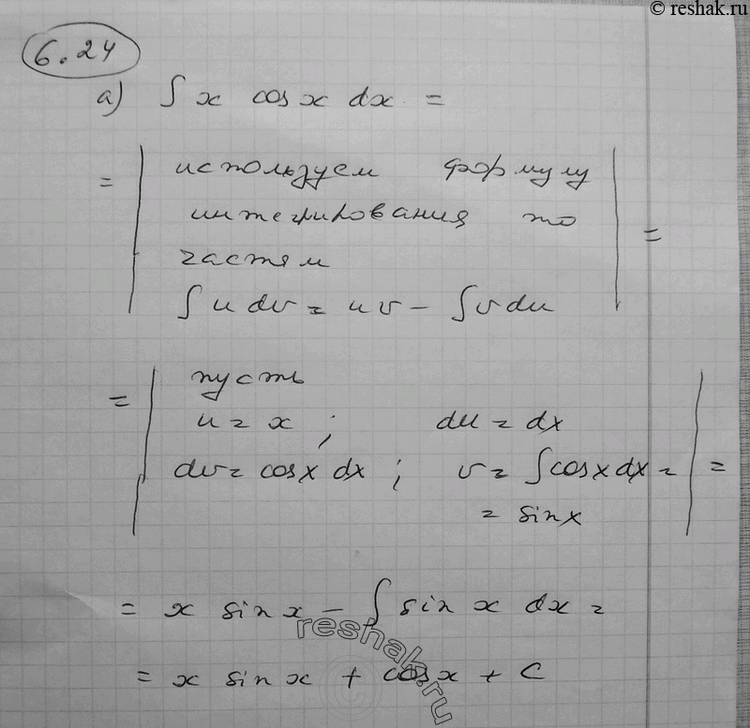 © reshak.ru
6.24
а) ∫ x cosx dx =
= | используем формулу
интегрирования по
частям
∫ u dv = uv - ∫ v du | =
= | пусть
u = x ; du = dx
dv = cosx dx ; v = ∫ cosx dx =
= sinx | =
= x sin x - ∫ sin x dx =
= x sin x + cosx + C
reshak.ru